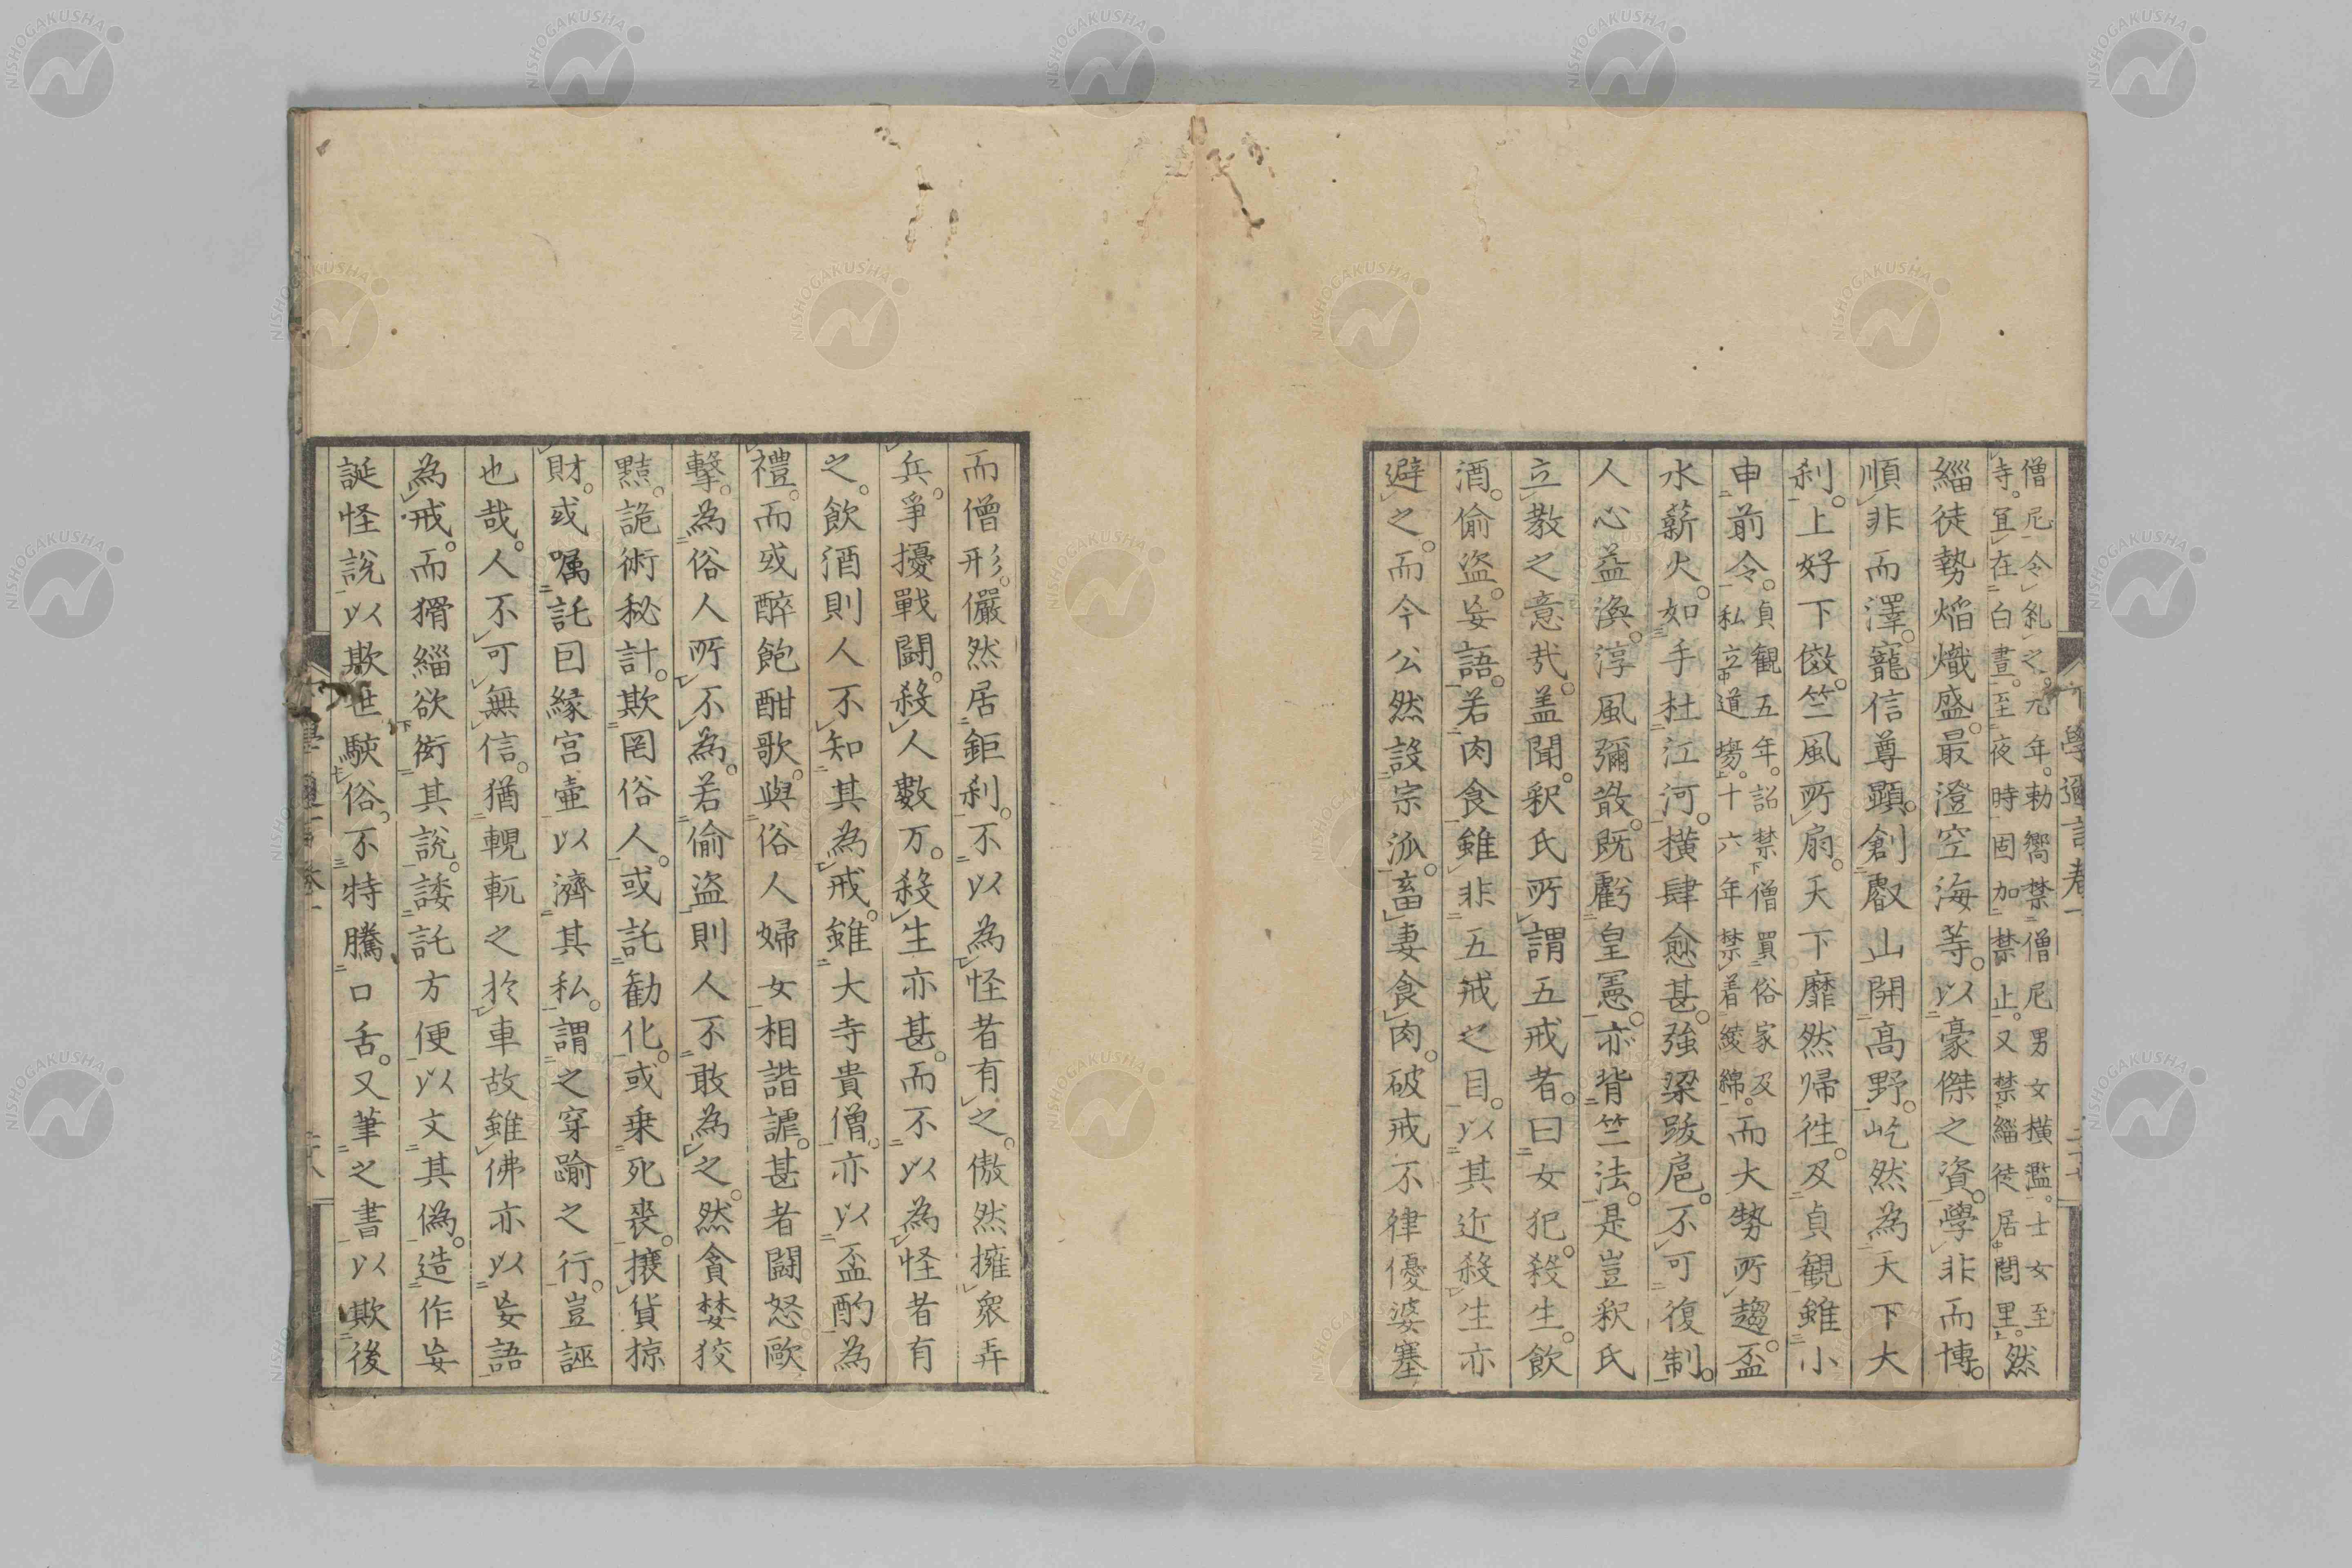 僧尼令糺之。元年。勅嚮禁僧尼男女横濫。士女至
寺。宜在白晝。至夜時固加禁止。又禁緇徒居閭里。然
緇徒勢焔熾盛。最澄空海等。以豪傑之資。學非而博。
順非而澤。寵信尊顯。創叡山開高野。屹然為天下大
刹。上好下傚。竺風所扇。天下靡然帰徃。及貞観雖小
申前令。貞観五年。詔禁僧買俗家及
私立道場。十六年禁着綾綿。而大勢所趨。盃
水薪火。如手杜江河。横肆愈甚。強梁跋扈。不可復制。
人心益渙。淳風彌散。既虧皇憲。亦背竺法。是豈釈氏
立教之意哉。盖聞。釈氏所謂五戒者。曰女犯。殺生。飲
酒。偷盗。妄語。若肉食雖非五戒之目。以其近殺生亦
避之。而今公然設宗派。畜妻食肉。破戒不律優婆塞
學適言巻一
而僧形。儼然居鉅利。不以為怪者有之。傲然擁衆弄
兵。爭擾戰闘。殺人數万。殺生亦甚。而不以為怪者有
之。飲酒則人不知其為戒。雖大寺貴僧。亦以盃酌為
禮。而或醉飽酣歌。與俗人婦女相諧謔。甚者闘怒歐
擊。為俗人所不為。若偷盗則人不敢為之。然貪婪狡
黠。詭術秘計。欺罔俗人。或託勧化。或乗死喪。攘貨掠
財。或嘱託因縁宮壷以濟其私。謂之穿踰之行。豈誣
也哉。人不可無信。猶輗軏之於車故雖佛亦以妄語
為戒。而猾緇欲衒其説。諉託方便以文其偽。造作妄
誕怪説以欺世駭俗。不特騰口舌。又筆之書以欺後